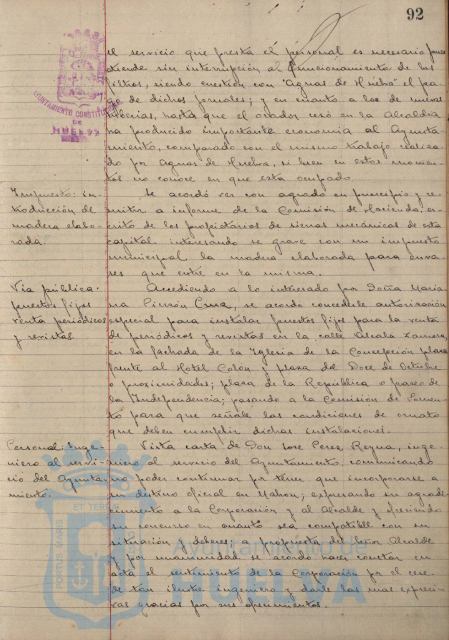 92
el servicio que presta el personal es necesario pues
atiende sin interrupción al funcionamiento de los
filtros, siendo cuestión con "Aguas de Huelva" el pago
de dichos jornales; y en cuanto a los de nuevas
tuberías, hasta que el orador cesó en la Alcaldía
ha producido importante economía al Ayunta-
miento, comparado con el mismo trabajo realiza-
do por Aguas de Huelva, si bien en estos momen-
tos no conoce en que está ocupado.
Impuesto: in-
troducción de
madera elabo-
rada.
Se acordó ver con agrado en principio y re-
mitir a informe de la Comisión de Hacienda, es-
crito de los propietarios de sierras mecánicas de esta
capital interesando se grave con un impuesto
municipal la madera elaborada para enva-
ses que entre en la misma.
Vía pública:
puestos fijos
venta periódicos
y revistas
Accediendo a lo interesado por Doña Maria-
na Pinzón Cruz, se acordó concederle autorización
especial para instalar puestos fijos para la venta
de periódicos y revistas en la calle Alcalá Zamora,
en la fachada de la Iglesia de la Concepción, plaza
frente al Hotel Colón y plaza del Doce de Octubre
o proximidades; plaza de la República o paseo de
la Independencia; pasando a la Comisión de Fomen-
to para que señale las condiciones de ornato
que deben cumplir dichas instalaciones.
Personal: Inge-
niero al servi-
cio del Ayunta-
miento.
Vista carta de Don José Pérez Reyna, inge-
niero al servicio del Ayuntamiento, comunicando
no poder continuar por tener que incorporarse a
su destino oficial en Mahón; expresando su agrade-
cimiento a la Corporación y al Alcalde y ofreciendo
su concurso en cuanto sea compatible con su
situación y deberes; a propuesta del señor Alcalde
y por unanimidad se acordó hacer constar en
acta el sentimiento de la Corporación por el cese
de tan ilustre ingeniero y darle las más expresi-
vas gracias por sus ofrecimientos.
AYUNTAMIENTO CONSTITUCIONAL
DE
HUELVA
Ayuntamiento de
HUELVA